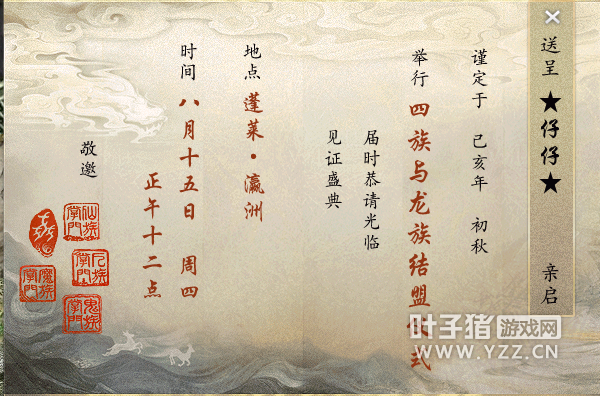 送呈 ★仔仔★ 亲启
谨定于 己亥年 初秋
举行 四族与龙族结盟仪式
届时恭请光临
见证盛典
地点 蓬莱·瀛洲
时间 八月十五日 周四
正午十二点
敬邀
仙族掌門
人族掌門
魔族掌門
鬼族掌門
叶子猪游戏网
WWW.YZZ.CN